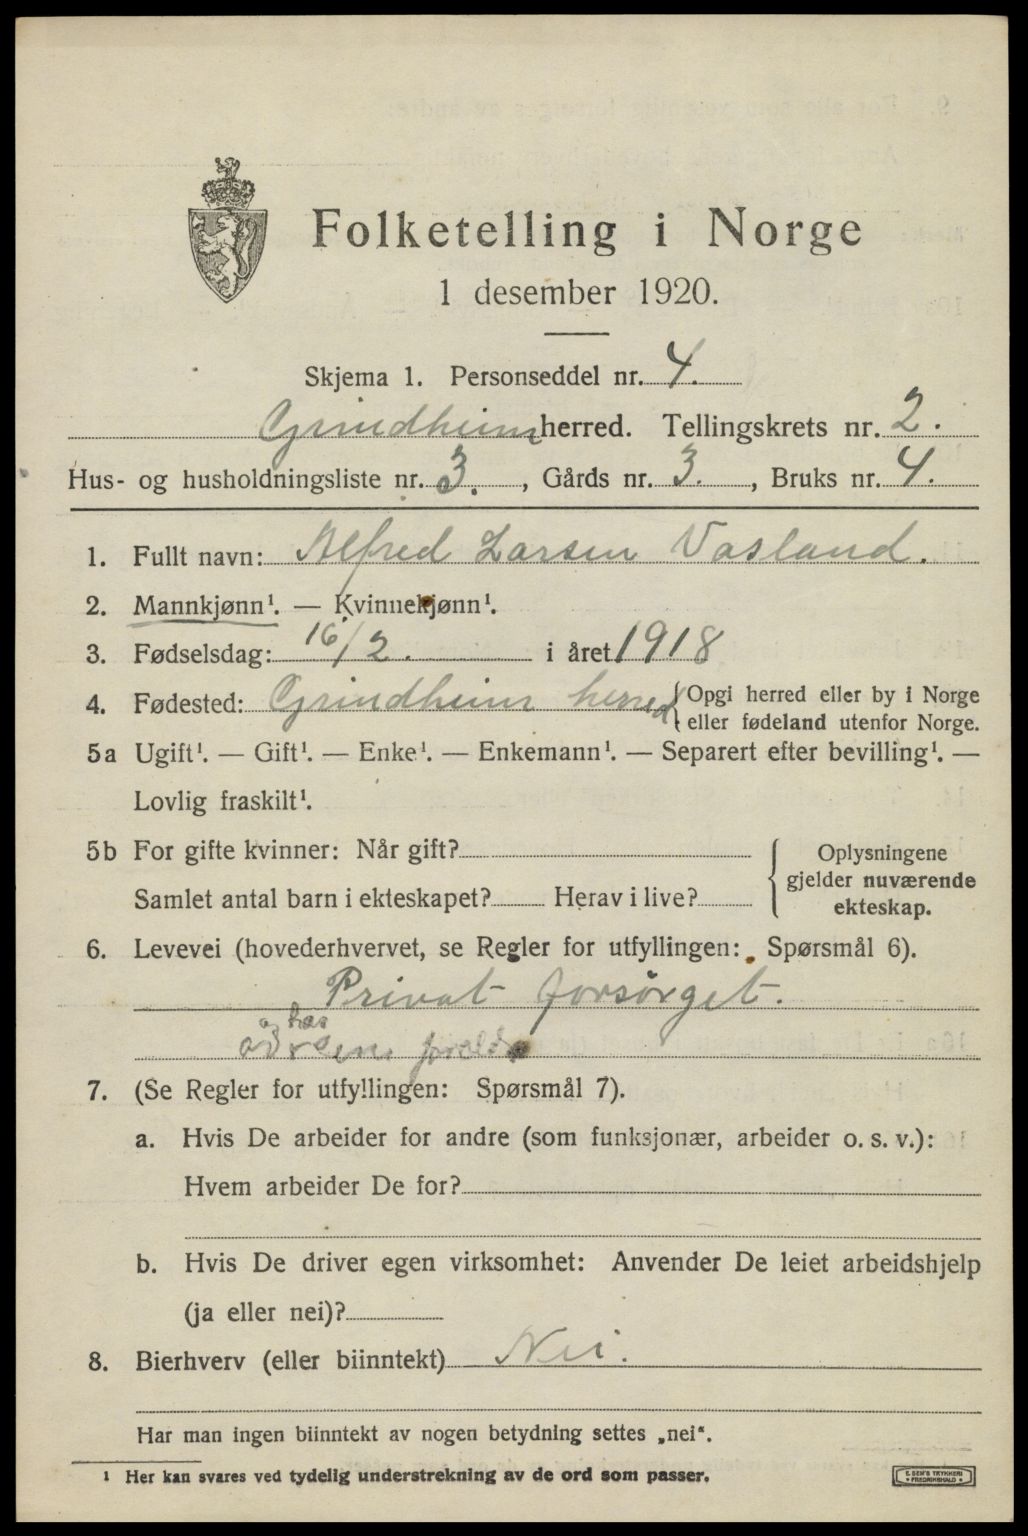 Folketelling i Norge
1 desember 1920.
Skjema 1. Personseddel nr. 4.
Grindheim herred. Tellingskrets nr. 2.
Hus- og husholdningsliste nr. 3. , Gårds nr. 3. , Bruks nr. 4.
1. Fullt navn: Alfred Larsen Vasland.
2. Mannkjønn¹. — Kvinnekjønn¹.
3. Fødselsdag: 16/2. i året 1918
4. Fødested: Grindheim herred { Opgi herred eller by i Norge
eller fødeland utenfor Norge.
5a Ugift¹. — Gift¹. — Enke¹. — Enkemann¹. — Separert efter bevilling¹. —
Lovlig fraskilt¹.
5b For gifte kvinner: Når gift?
Samlet antal barn i ekteskapet? Herav i live?
{ Oplysningene
gjelder nuværende
ekteskap.
6. Levevei (hovederhvervet, se Regler for utfyllingen: Spørsmål 6).
Privat forsørget.
7. (Se Regler for utfyllingen: Spørsmål 7).
a. Hvis De arbeider for andre (som funksjonær, arbeider o. s. v.):
Hvem arbeider De for?
b. Hvis De driver egen virksomhet: Anvender De leiet arbeidshjelp
(ja eller nei)?
8. Bierhverv (eller biinntekt) Nei.
Har man ingen biinntekt av nogen betydning settes „nei“.
¹ Her kan svares ved tydelig understrekning av de ord som passer.
E. SEM'S TRYKKERI
• FREDRIKSHALD •